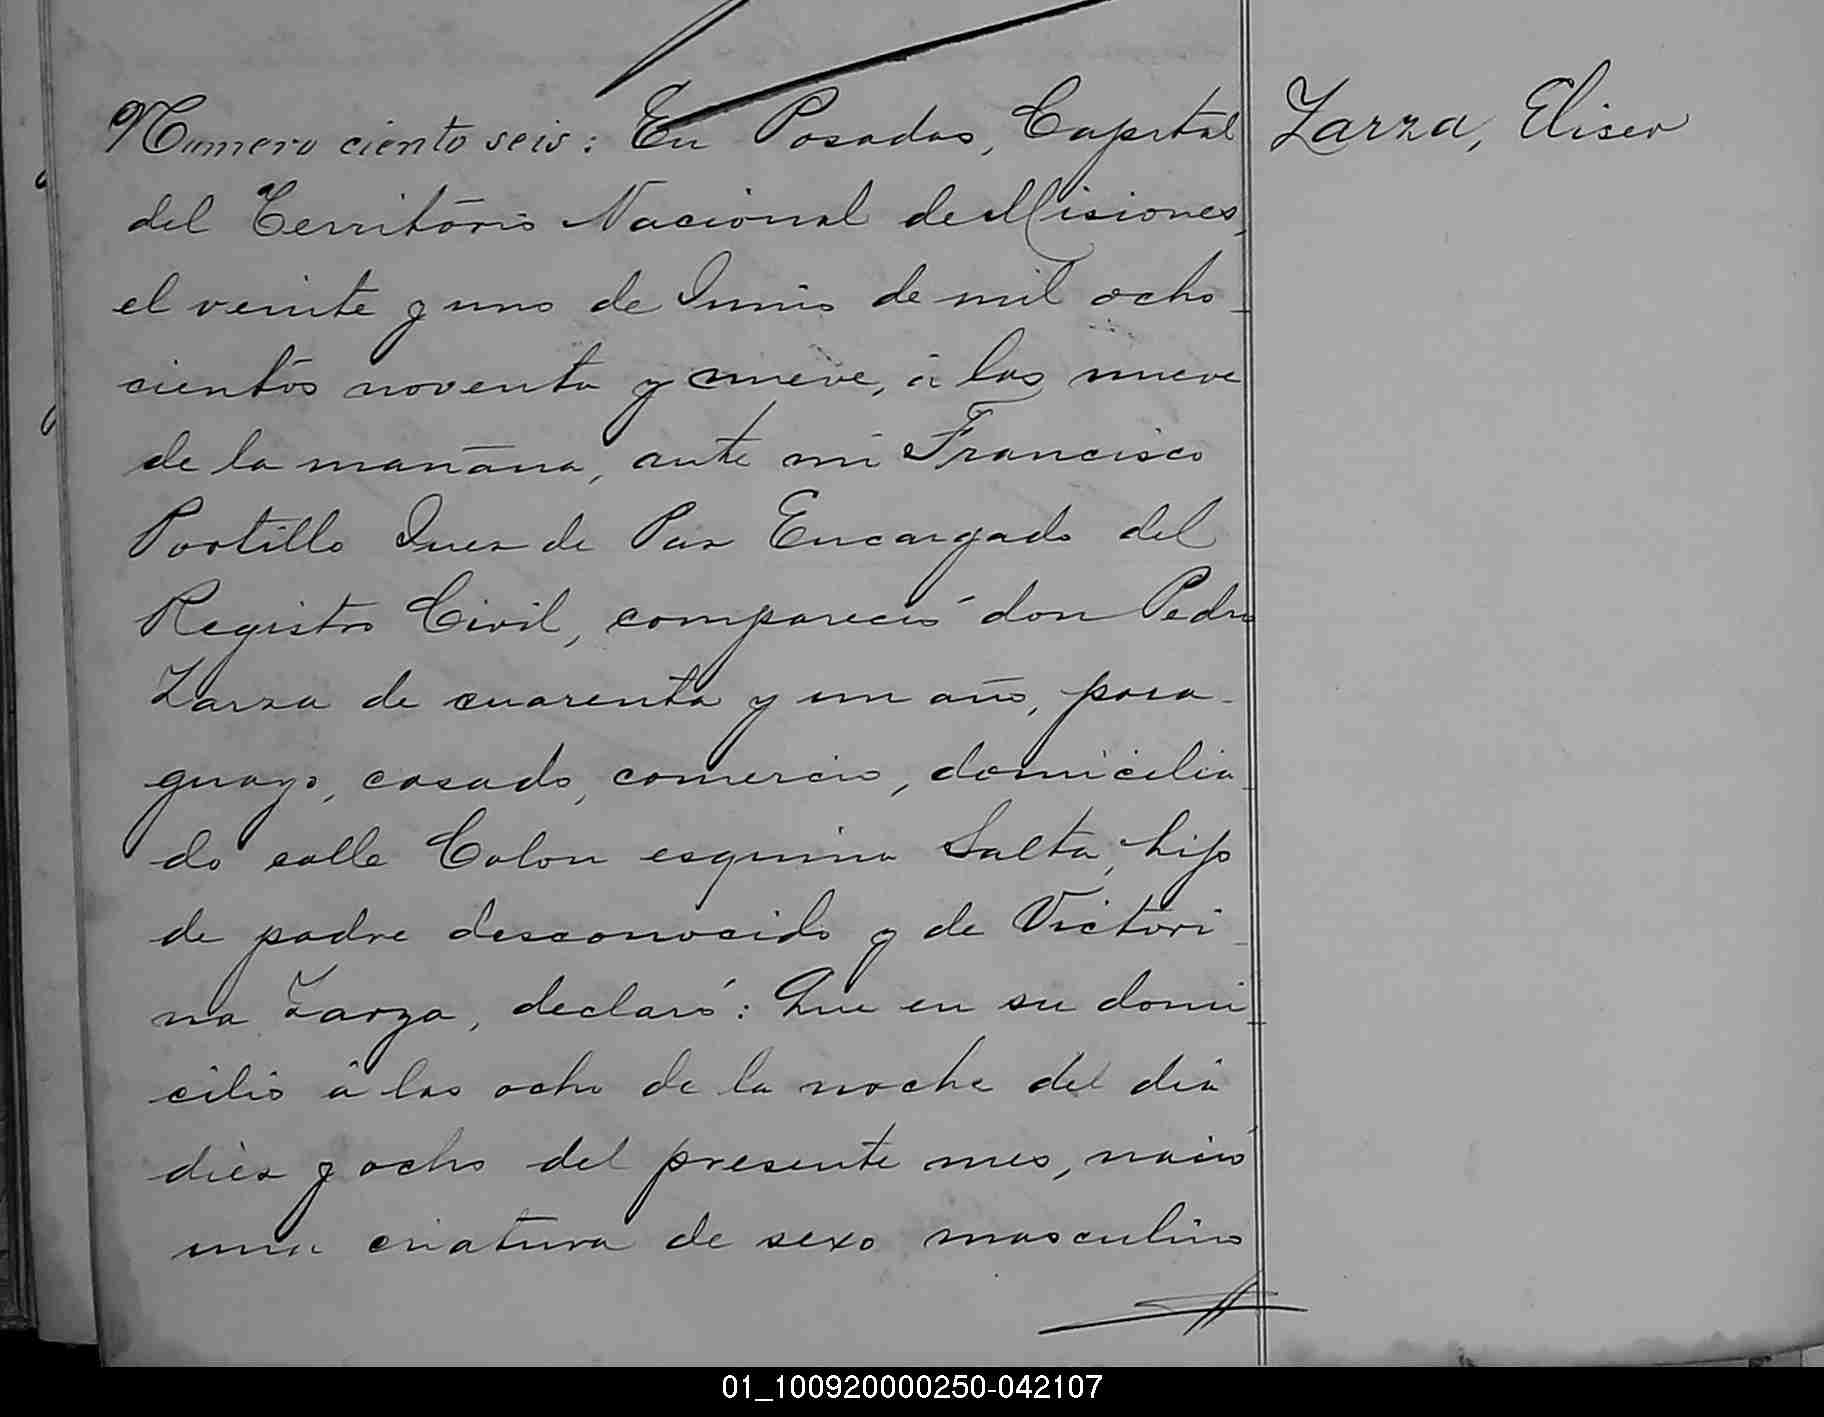 Numero ciento seis: En Posadas, Capital
Zarza, Eliseo
del Territorio Nacional de Misiones,
el veinte y uno de Junio de mil ocho-
cientos noventa y nueve, á las nueve
de la mañana, ante mi Francisco
Portillo Juez de Paz Encargado del
Registro Civil, compareció don Pedro
Zarza de cuarenta y un año, para-
guayo, casado, comercio, domicilia-
do calle Colon esquina Salta, hijo
de padre desconocido y de Victori-
na Zarza, declaró: Que en su domi-
cilio á las ocho de la noche del dia
diez y ocho del presente mes, nació
una criatura de sexo masculino
01_100920000250-042107